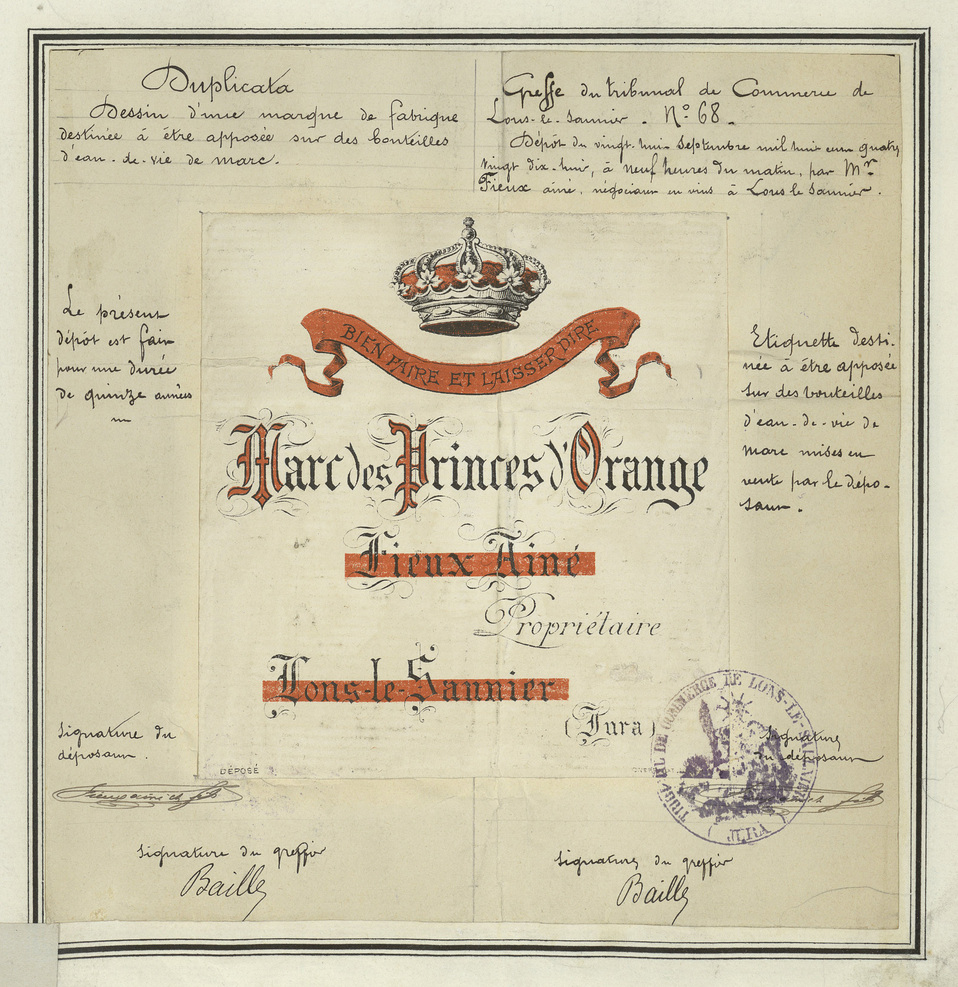 Duplicata
Dessin d'une marque de fabrique
destinée à être apposée sur des bouteilles
d'eau-de-vie de marc.
Greffe du tribunal de Commerce de
Lons-le-Saunier. N° 68.
Dépôt du vingt-huit Septembre mil huit cent quatre
vingt dix-huit, à neuf heures du matin, par Mr
Fieux ainé, négociant en vins à Lons le Saunier.
BIEN FAIRE ET LAISSER DIRE
Le présent
dépôt est fait
pour une durée
de quinze années
Etiquette desti-
née à être apposée
sur des bouteilles
d'eau-de-vie de
marc mises en
vente par le dépo-
sant.
Marc des Princes d'Orange
Fieux Ainé
Propriétaire
Lons-le-Saunier
(Jura)
DÉPOSÉ
Signature du
déposant.
Signature
du déposant
TRIBAL DE COMMERCE DE LONS-LE-SAUNIER
(JURA)
Signature du greffier
Baille
Signature du greffier
Baille